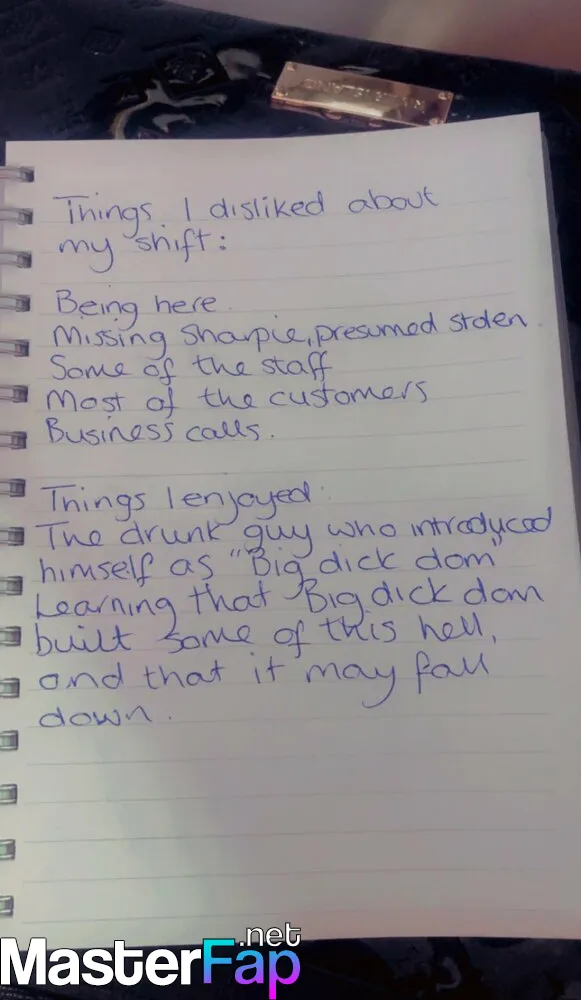 Things I disliked about
my shift:
Being here.
Missing Sharpie, presumed stolen.
Some of the staff
Most of the customers
Business calls.
Things I enjoyed:
The drunk guy who introduced
himself as "Big dick dom"
Learning that Big dick dom
built some of this hell,
and that it may fall
down.
MasterFap.net